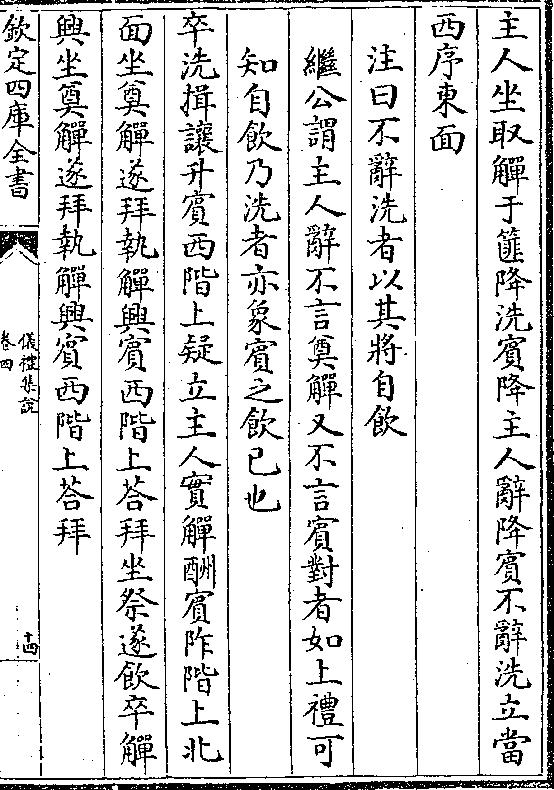 主人坐取觶于篚降洗賓降主人辭降賓不辭洗立當
西序東面
注曰不辭洗者以其將自飲
繼公謂主人辭不言奠觶又不言賓對者如上禮可
知自飲乃洗者亦象賓之飲已也
卒洗揖讓升賓西階上疑立主人實觶酬賓阼階上北
面坐奠觶遂拜執觶興賓西階上荅拜坐祭遂飲卒觶
興坐奠觶遂拜執觶興賓西階上荅拜
欽定四庫全書
儀禮集說
卷四
十四